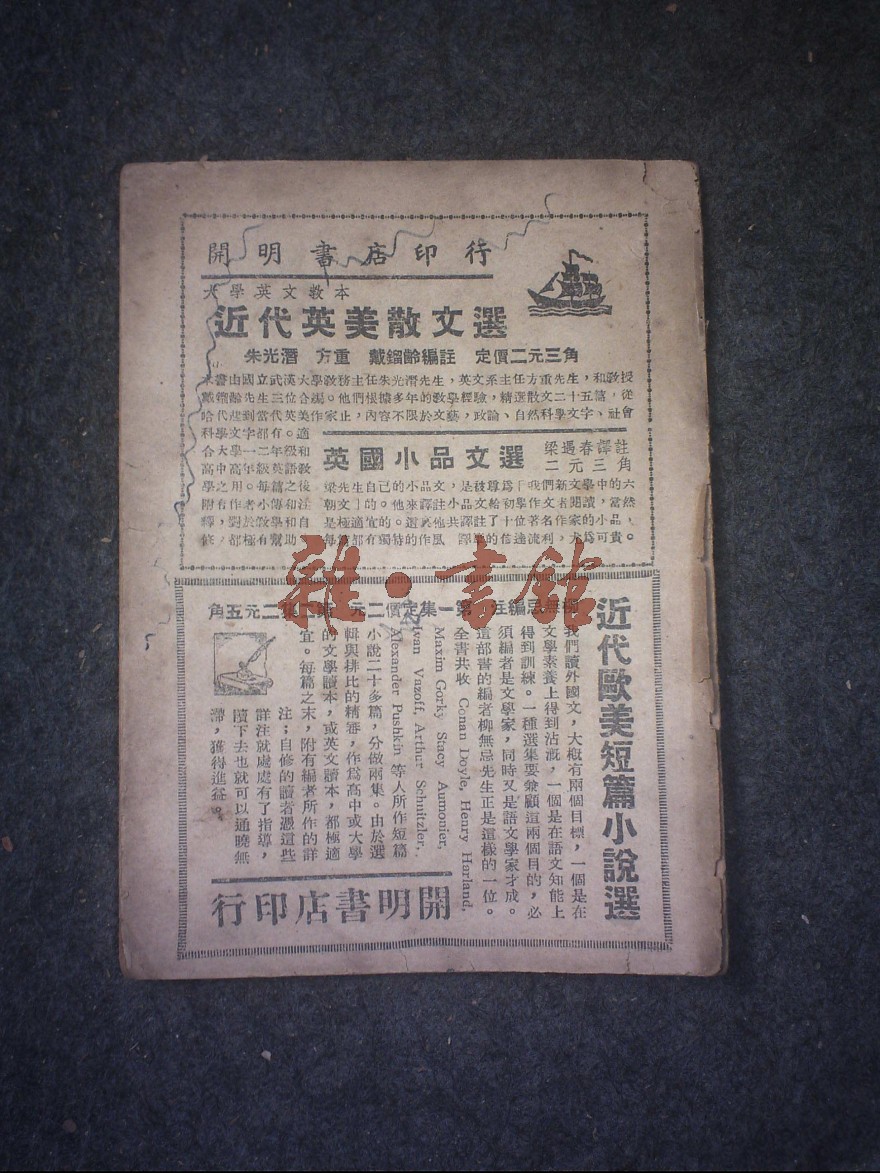 開明書店印行
大學英文教本
近代英美散文選
朱光潛 方重 戴鎦齡編註 定價二元三角
本書由國立武漢大學敎務主任朱光潛先生，英文系主任方重先生，和敎授
戴鎦齡先生三位合編。他們根據多年的敎學經驗，精選散文二十五篇，從
哈代起到當代英美作家止，內容不限於文藝，政論、自然科學文字、社會
科學文字都有。適
合大學一二年級和
高中高年級英語敎
學之用。每篇之後
附有作者小傳和注
釋，對於敎學和自
修，都極有幫助
英國小品文選
梁遇春譯註
二元三角
梁先生自己的小品文，是被尊爲「我們新文學中的六
朝文」的。他來譯註小品文給初學作者閱讀，當然
是極適宜的。選裏他共譯註了十位著名作家的小品，
每篇都有獨特的作風，譯筆的信達流利，尤爲可貴。
近代歐美短篇小說選
柳無忌編註 第一集定價二元 第二集二元五角
我們讀外國文，大概有兩個目標，一個是在
文學素養上得到沾漑，一個是在語文知能上
得到訓練。一種選集要兼顧這兩個目的，必
須編者是文學家，同時又是語文學家才成。
這部書的編者柳無忌先生正是這樣的一位。
全書共收 Conan Doyle, Henry Harland,
Maxim Gorky Stacy Aumonier,
Ivan Vazoff, Arthur Schnitzler,
Alexander Pushkin 等人所作短篇
小說二十多篇，分做兩集。由於選
輯與排比的精審，作爲高中或大學
的文學讀本，或英文讀本，都極適
宜。每篇之末，附有編者所作的詳
注；自修的讀者憑這些
詳注就處處有了指導，
讀下去也就可以通曉無
滯，獲得進益。
開明書店印行
雜·書館